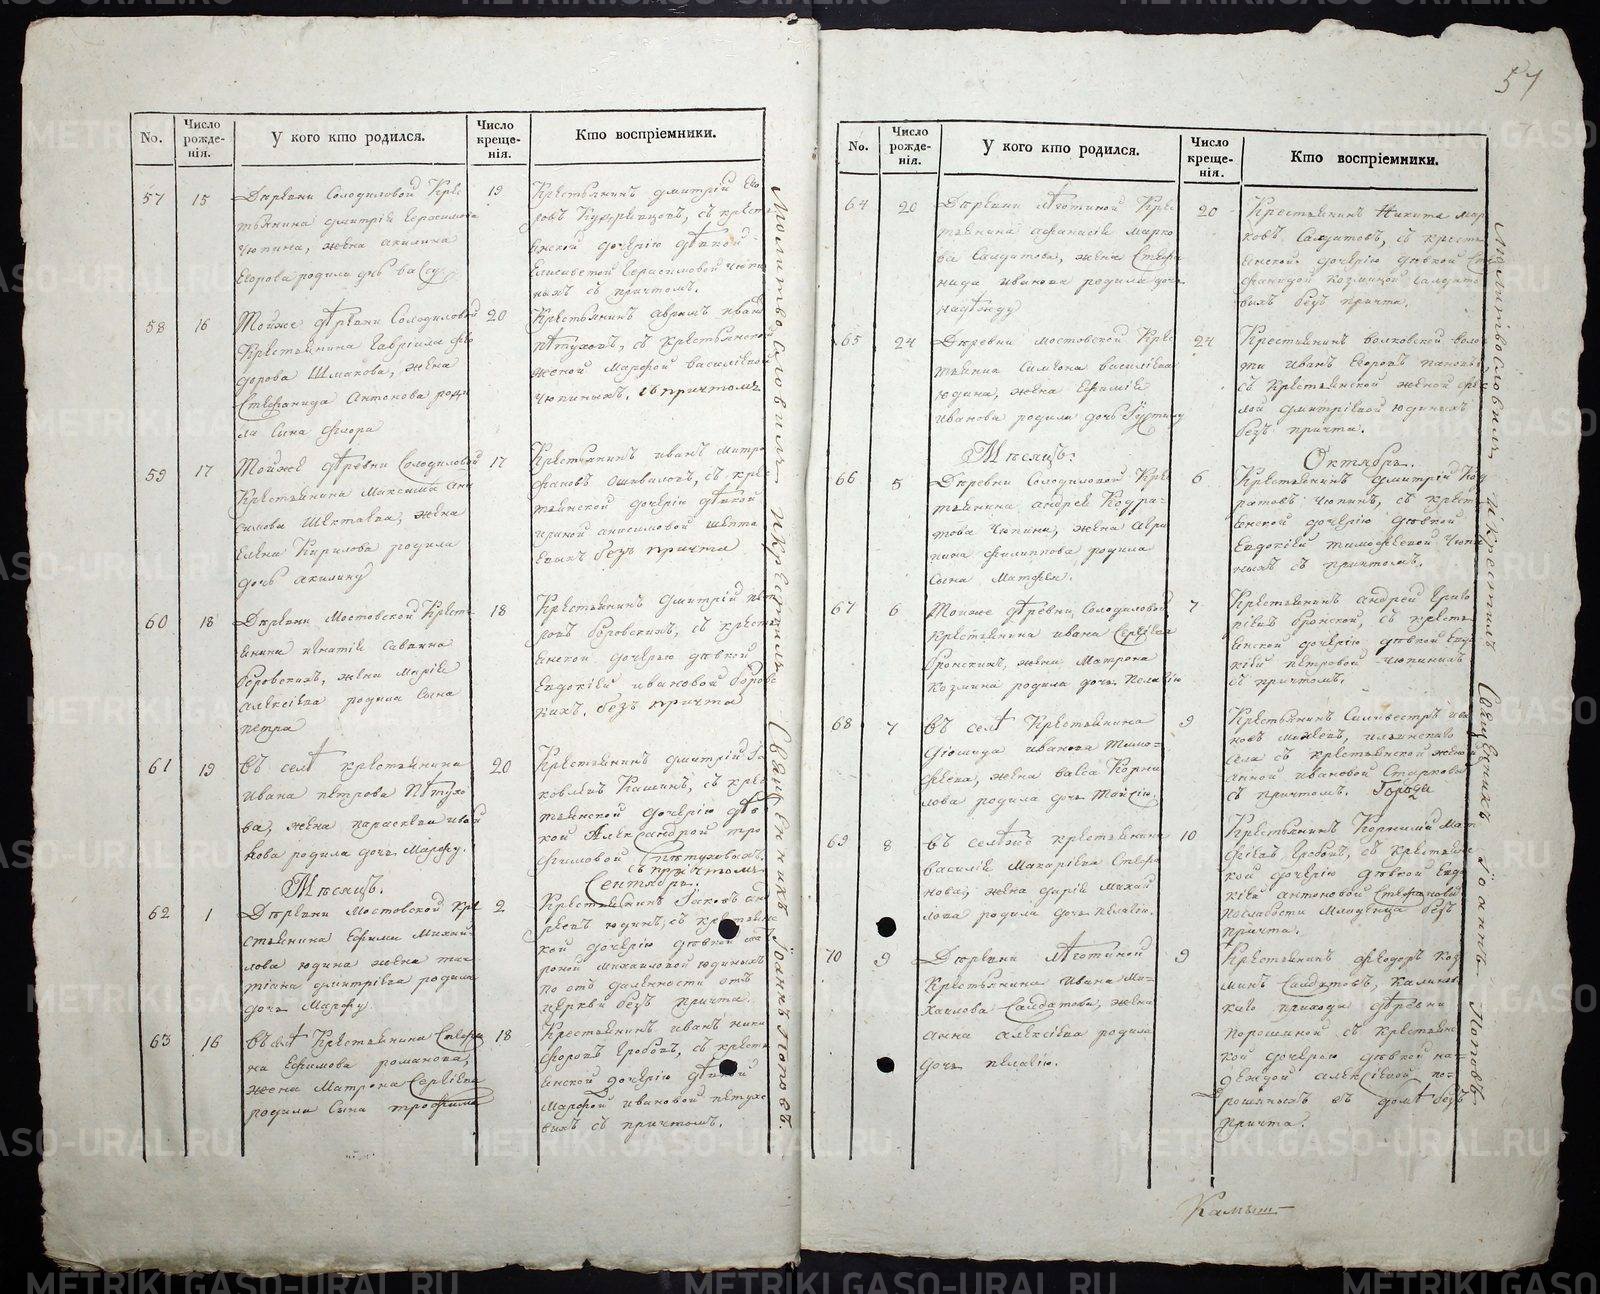 57
No.
Число рожде-нія.
У кого кто родился.
Число креще-нія.
Кто воспріемники.
57 15
Деревни Солодиловой Крес
тьянина Дмитрія Герасимова
Чюпина, жена акилина
Егорова родила дчь Вассу
19
Крестьянинъ Дмитрій
съ кресть
янской дочерію девкой
Елисаветой Герасимовой Чюпи
ныхъ съ причтомъ.
58 16
Тойже деревни Солодиловой
Крестьянина Гавріила Фео
дорова Шмакова, жена
Стефанида Антонова роди
ла сына Флора
20
Крестьянинъ аврамъ иван
петуховъ, съ крестьянской
женой Марфой Василіевной
Чюпиныхъ. съ причтомъ
59 17
Тойже деревни Солодиловой
Крестьянина Максима Ани
симова жена
Елена Кирилова родила
дочь акилину
17
Крестьянинъ иванъ митро
фановъ съ крес
тьянской дочерію девкой
ириной анисимовой
безъ причта
60 18
Деревни Мостовской Кресть
янина игнатія Саввина
Боровскихъ, жена Марія
алексіева родила сына
петра
18
Крестьянинъ Дмитрій пет
ровъ Боровскихъ, съ кресть
янской дочерью девкой
Евдокіей ивановой Боровс
кихъ. безъ причта
61 19
Въ селе крестьянина
ивана петрова Петухо
ва, жена параскева иван
нова родила дочь Марфу.
20
Крестьянинъ Дмитрій Іа
ковлевъ Кашинъ, съ крес
тьянской дочерію дев
кой Александрой тро
фимовой петуховыхъ.
съ причтомъ
Месяцъ. Сентябрь.
62 1
Деревни Мостовской Кре
стьянина Ефима Михай
лова юдина жена та
тіана Дмитріева родила
дочь Марфу
2
Крестьянинъ Іаковъ ан
реевъ юдинъ, съ крестьянс
кой дочерію девкой мат
роной Михаиловой юдиныхъ
по отъ даленности отъ
церкви безъ причта.
63 16
Въ селе Крестьянина Стефа
на Ефимова романова,
жена Матрона Сергіева
родила сына трофима
18
Крестьянинъ иванъ ники
форовъ Гробовъ, съ кресть
янской дочерію девкой
Марфой ивановой петухо
выхъ съ причтомъ.
Молитвословилъ и крестилъ Священникъ Іоаннъ Поповъ.
No.
Число рожде-нія.
У кого кто родился.
Число креще-нія.
Кто воспріемники.
64 20
Деревни Крес
тьянина афанасія Марко
ва Салдатова, жена Стефа
нида иванова родила дочь
надежду
20
Крестьянинъ Никита мар
ковъ Салдатовъ, съ кресть
янской дочерію девкой Сте
фанидой козминой салдато
выхъ безъ причта.
65 24
Деревни мостовской Крес
тьянина Симеона василіева
юдина, жена Ефимія
иванова родила дочь Іустину
24
Крестьянинъ волковской воло
сти иванъ Егоровъ пановъ
съ крестьянской женой фе
лой дмитріевой юдиныхъ
безъ причта.
Месяцъ. Октябрь.
66 5
Деревни Солодиловой Крес
тьянина андрея Кодра-
това Чюпина, жена агри
пина филиппова родила
сына матфея.
6
Крестьянинъ Дмитрій Код
ратовъ Чюпинъ, съ кресть
янской дочерію девкой
Евдокіей тимофеевой Чюпи
ныхъ съ причтомъ.
67 6
Тойже деревни Солодиловой
крестьянина ивана Сергіева
бронскихъ, жена Матрона
козмина родила дочь пелагію
7
Крестьянинъ андрей Григо
ріевъ бронской, съ кресть
янской дочерію девкой Евдо
кіей петровой
съ причтомъ.
68 7
Въ селе Крестьянина
Діомида иванова Тимо-
феева, жена васса Корни
лова родила дочь таисію.
9
Крестьянинъ Силивестръ ива
новъ
села съ крестьянской женой
анной ивановой Старковой
съ причтомъ.
69 8
Въ селе крестьянина
василія Макаріева Стефа
нова, жена дарія михай
лова родила дочь пелагію.
10
Крестьянинъ Корнилій Мат
феевъ Гробовъ, съ крестьянс
кой дочерію девкой Евдо
кіей антоновой Стефановой
по слабости младенца безъ
причта.
70 9
Деревни
Крестьянина ивана Ми-
хаилова Салдатова, жена
анна алексіева родила
дочь пелагію.
9
Крестьянинъ феодоръ Коз
минъ Салдатовъ,
каго прихода деревни
порошиной съ крестьянс
кой дочерью девкой на-
деждой алексіевой по-
рошиныхъ въ доме безъ
причта.
Молитвословилъ и крестилъ Священникъ Іоаннъ Поповъ
Камыш
METRIKI.GASO-URAL.RU